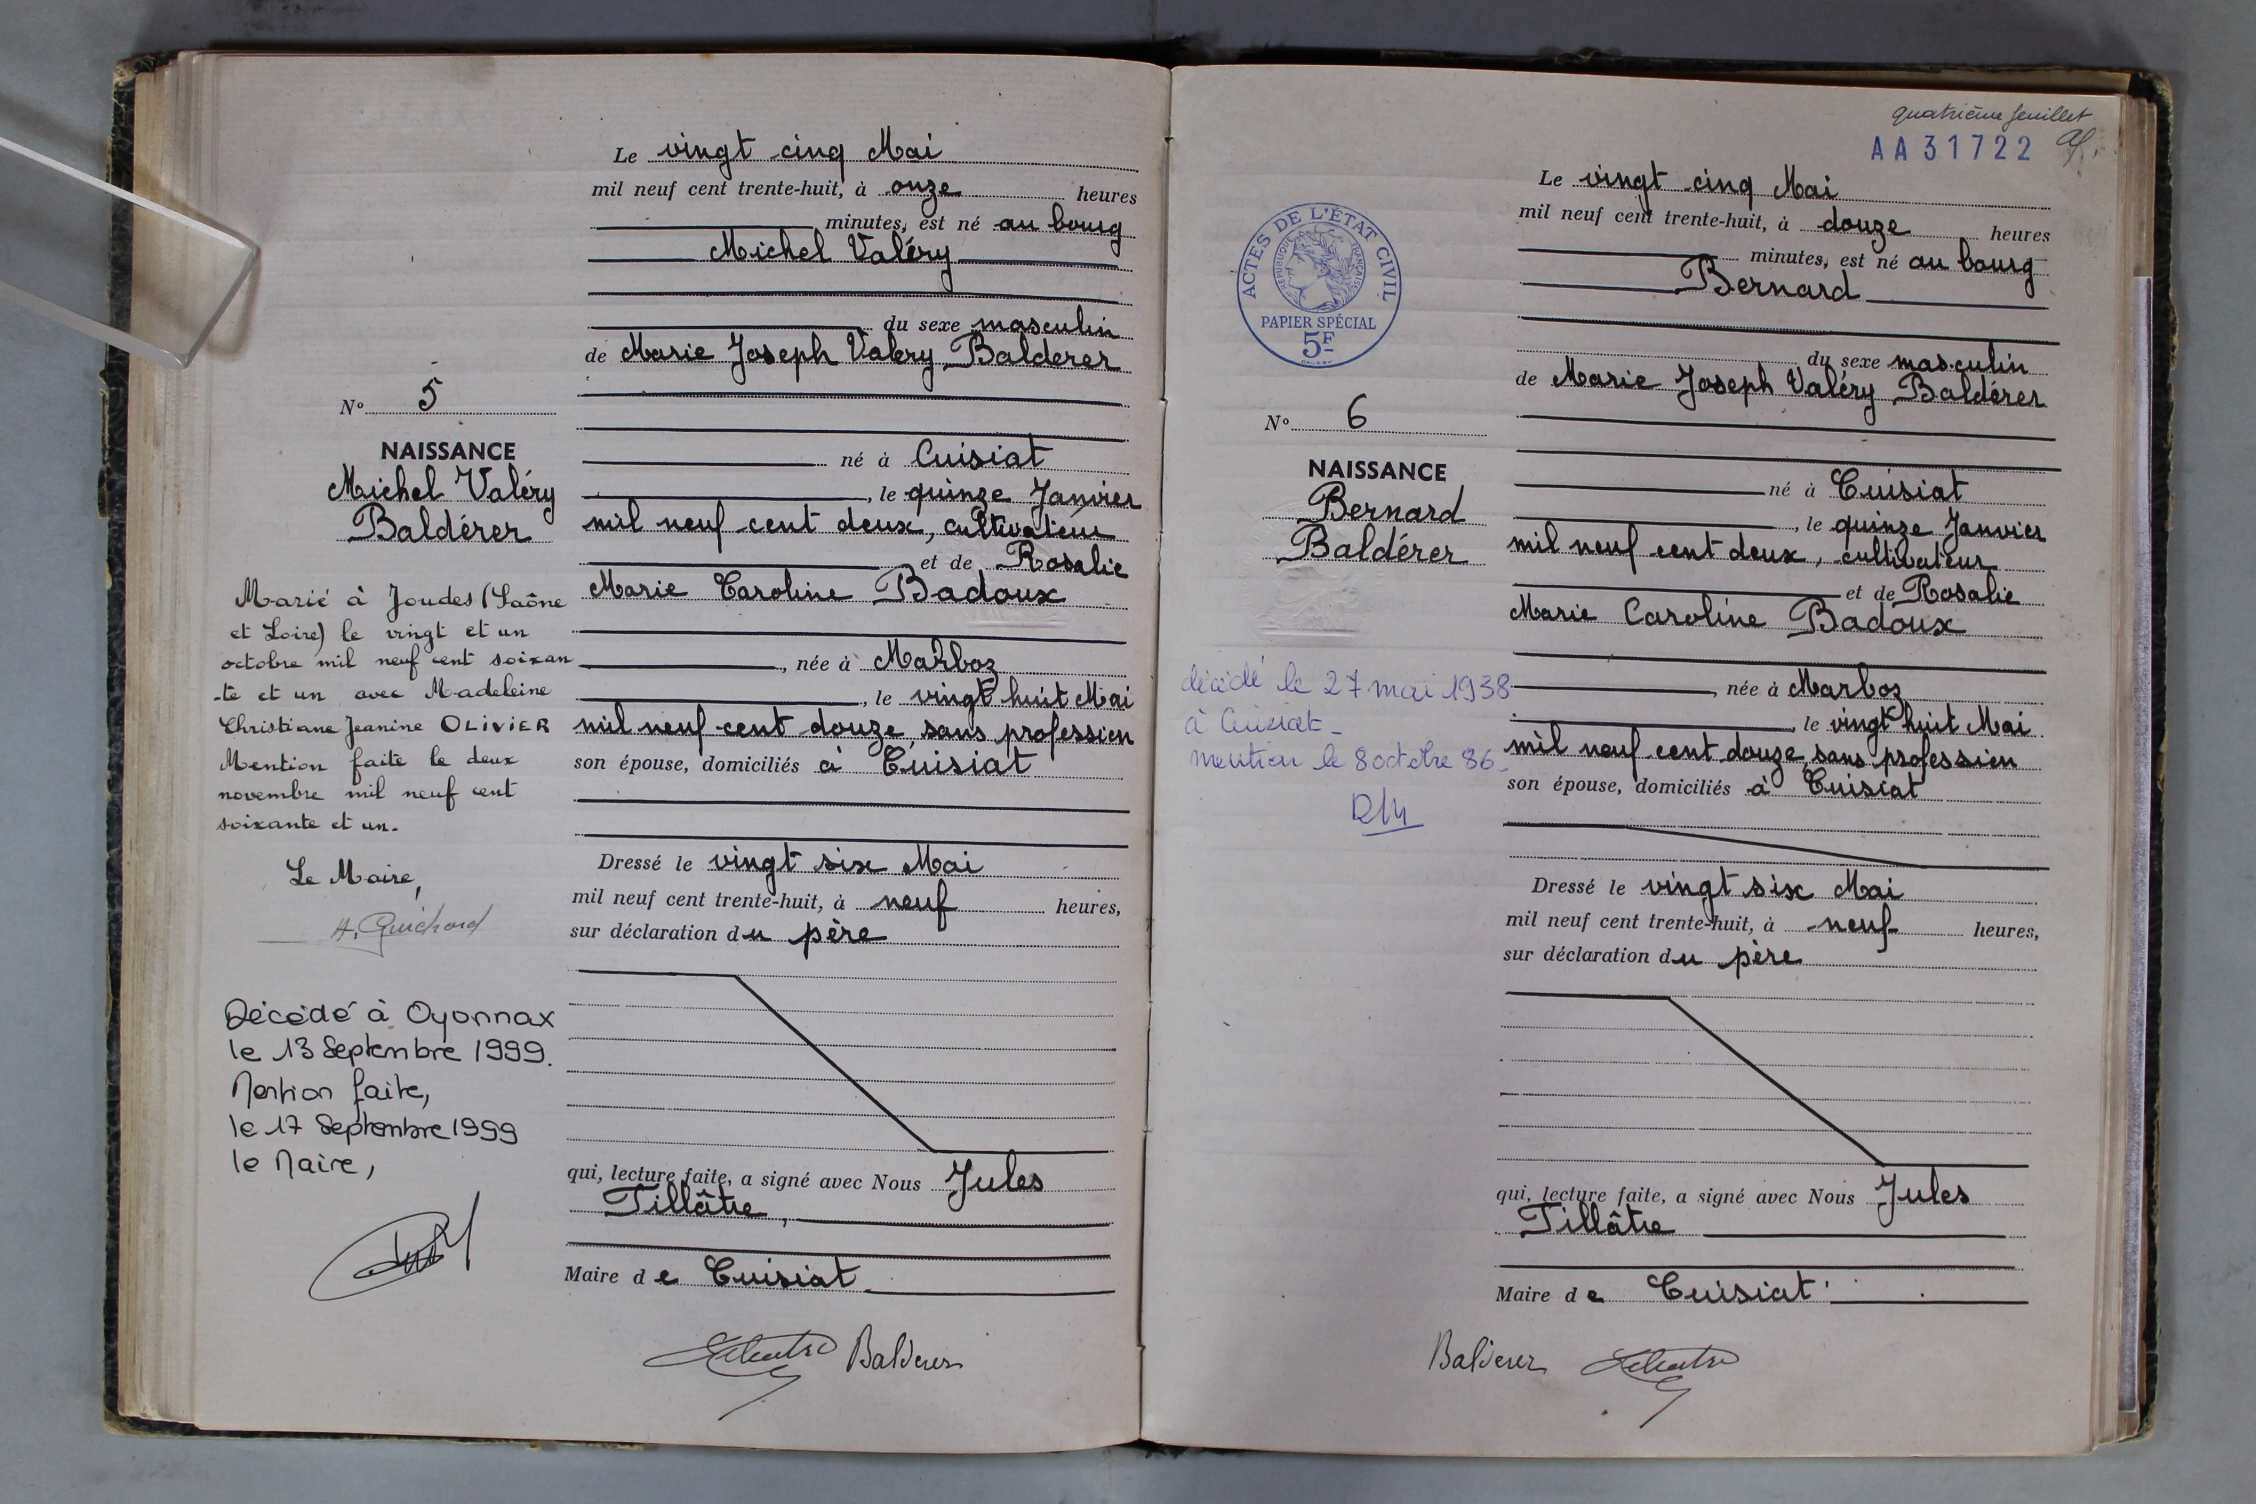 Le vingt cinq Mai
mil neuf cent trente-huit, à onze heures
minutes, est né au bourg
Michel Valéry
du sexe masculin
de Marie Joseph Valéry Balderer
né à Cuisiat
, le quinze Janvier
mil neuf cent deux, cultivateur
et de Rosalie
Marie Caroline Badoux
, née à Marboz
, le vingt huit Mai
mil neuf cent douze, sans profession
son épouse, domiciliés à Cuisiat
Dressé le vingt six Mai
mil neuf cent trente-huit, à neuf heures,
sur déclaration du père
qui, lecture faite, a signé avec Nous Jules
Tillâtre,
Maire de Cuisiat
Balderer
N° 5
NAISSANCE
Michel Valéry
Baldérer
Marié à Joudes (Saône
et Loire) le vingt et un
octobre mil neuf cent soixan
-te et un avec Madeleine
Christiane Jeanine OLIVIER
Mention faite le deux
novembre mil neuf cent
soixante et un.
Le Maire,
H. Guichard
Décédé à Oyonnax
le 13 Septembre 1999.
Mention faite,
le 17 Septembre 1999
le Maire,
quatrième feuillet
AA31722
Le vingt cinq Mai
mil neuf cent trente-huit, à douze heures
minutes, est né au bourg
Bernard
du sexe masculin
de Marie Joseph Valéry Baldérer
né à Cuisiat
, le quinze Janvier
mil neuf cent deux, cultivateur
et de Rosalie
Marie Caroline Badoux
, née à Marboz
, le vingt huit Mai
mil neuf cent douze, sans profession
son épouse, domiciliés à Cuisiat
Dressé le vingt six Mai
mil neuf cent trente-huit, à neuf heures,
sur déclaration du père
qui, lecture faite, a signé avec Nous Jules
Tillâtre
Maire de Cuisiat
Balderer
ACTES DE L'ÉTAT CIVIL
RÉPUBLIQUE FRANÇAISE
PAPIER SPÉCIAL
5F
N° 6
NAISSANCE
Bernard
Baldérer
décédé le 27 mai 1938
à Cuisiat_
mention le 8 octobre 86_